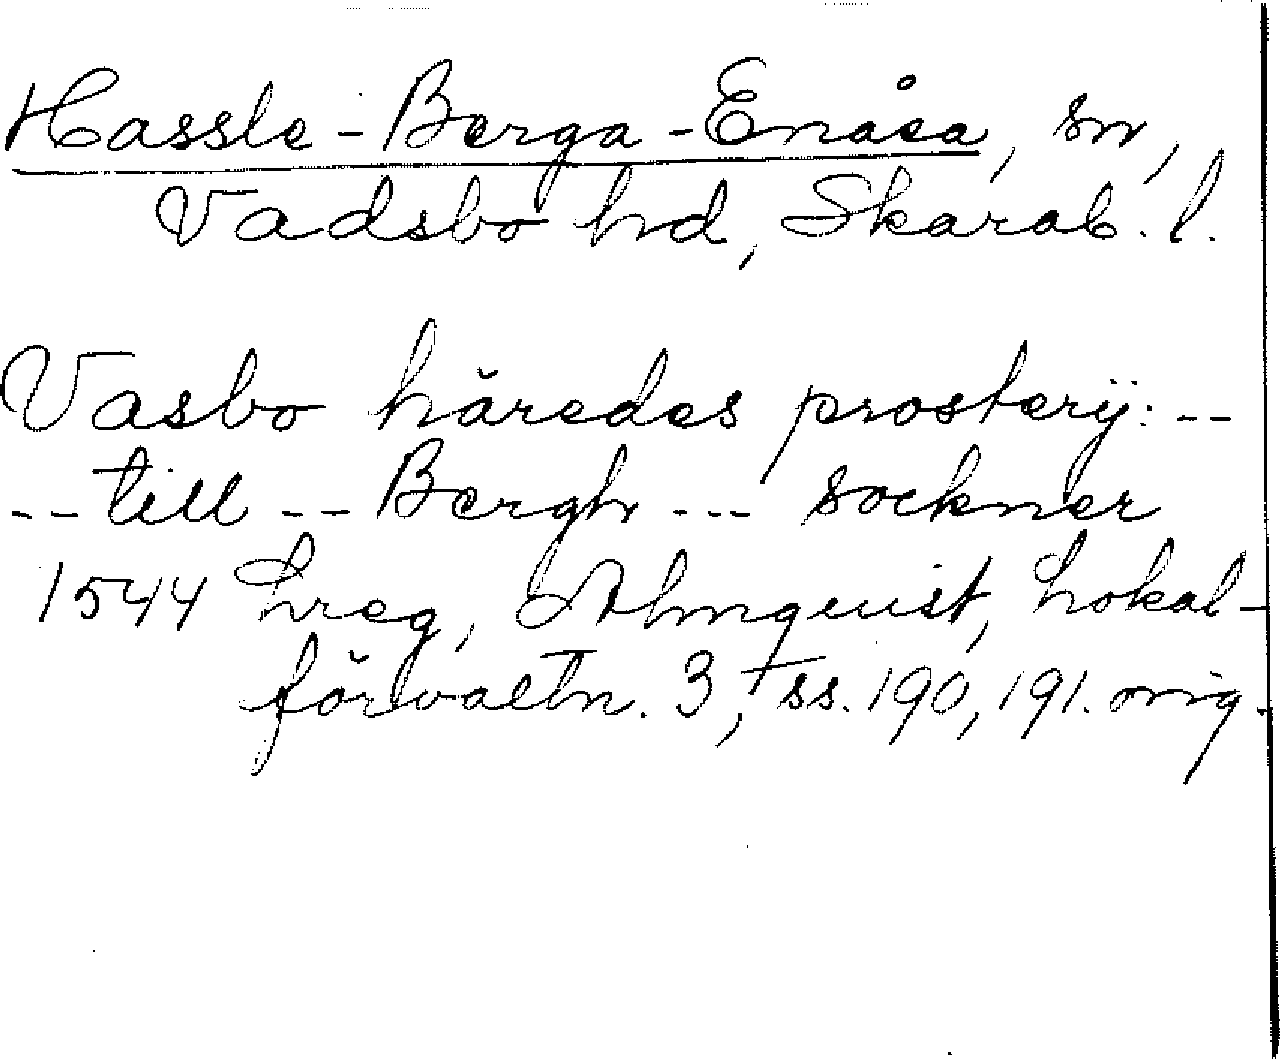 Hassle-Berga-Enåsa, sn,
Vadsbo hd, Skarab. l.
Vasbo häredes prosterÿ: --
-- till -- Bergh --- sockner
1544 Lreg, Almquist, Lokal-
förvaltn. 3, ss. 190, 191. orig.